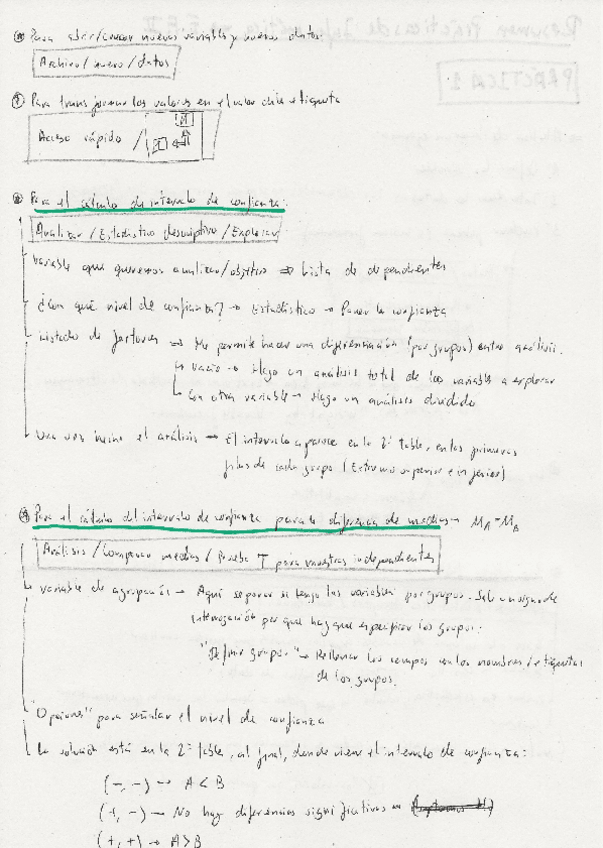 Para abrir/crear nuevas variables y nuevos datos:
Archivo / nuevo / datos
Para transformar los valores en el valor de la etiqueta
Acceso rápido /
Para el cálculo de intervalo de confianza:
Analizar / Estadístico descriptivo / Explorar
Variable que queremos analizar/objetivo ⇒ Lista de dependientes
¿Con qué nivel de confianza? → Estadístico → Poner la confianza
Listado de factores ⇒ Me permite hacer una diferenciación (por grupos) entre análisis.
↳ Vacío → Hago un análisis total de las variable a explorar
↳ Con otra variable → Hago un análisis dividido
Una vez hecho el análisis → El intervalo aparece en la 2ª tabla, en las primeras
filas de cada grupo (Extremo superior e inferior)
Para el cálculo del intervalo de confianza para la diferencia de medias → M_A - M_B
Análisis / Comparar medias / Prueba T para muestras independientes
Variable de agrupación → Aquí separar si tengo las variables por grupos. Sale un signo de
interrogación por que hay que especificar los grupos:
"Definir grupos" → Rellenar los campos con los nombres de etiquetas
de los grupos.
"Opciones" para señalar el nivel de confianza
La solución está en la 2ª tabla, al final, donde viene el intervalo de confianza:
(-, -) → A < B
(+, -) → No hay diferencias significativas
(+, +) → A > B